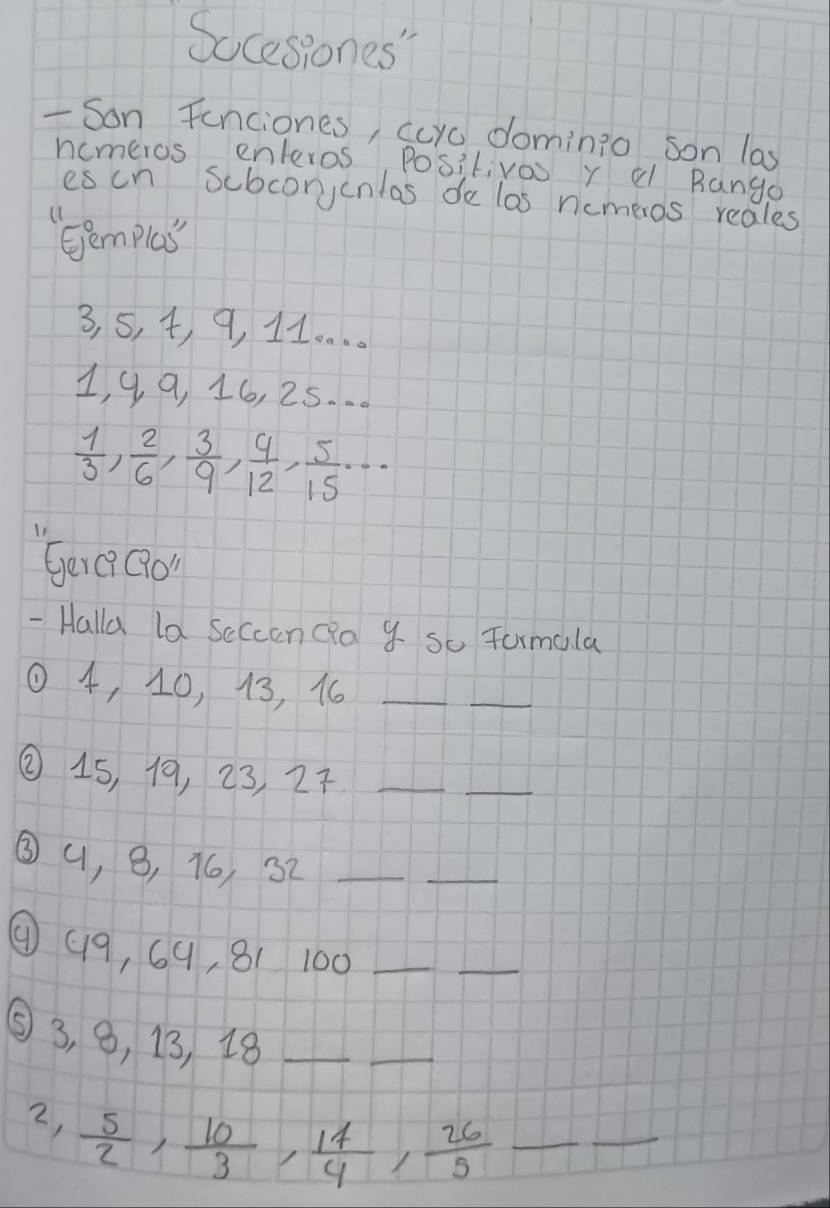 Sucesiones"
- Son Funciones, cuyo dominio son los
numeros enteros Positivos y el Rango
es un subconjuntos de los numeros reales
"Ejemplos"
3, 5, 7, 9, 11....
1, 4, 9, 16, 25....
1/3, 2/6, 3/9, 4/12, 5/15...
"Ejercicio"
- Halla la secuencia y su Formula
① 7, 10, 13, 16 __ __
② 15, 19, 23, 27 __ __
③ 4, 8, 16, 32 __ __
④ 49, 64, 81 100 __ __
⑤ 3, 8, 13, 18 __ __
2, 5/2, 10/3, 17/4, 26/5 __ __